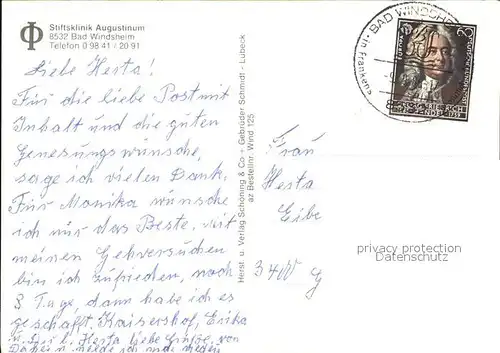 Stiftsklinik Augustinum
8532 Bad Windsheim
Telefon 0 98 41 / 20 91
Liebe Herta!
Für die liebe Post mit
Inhalt und die guten
Genesungswünsche,
sage ich vielen Dank.
Für Monika wünsche
ich nur das Beste. Mit
meinen Gehversuchen
bin ich zufrieden, noch
8 Tage, dann habe ich es
geschafft. Kaisershof, Erika
Herta liebe Grüße, von
melde ich mich wieder
Herst. u. Verlag Schöning & Co + Gebrüder Schmidt - Lübeck
az Bestellnr. Wind 125
BAD WINDSHEIM
in Franken
60
Frau
Herta
Eibe
3400 G
privacy protection
Datenschutz